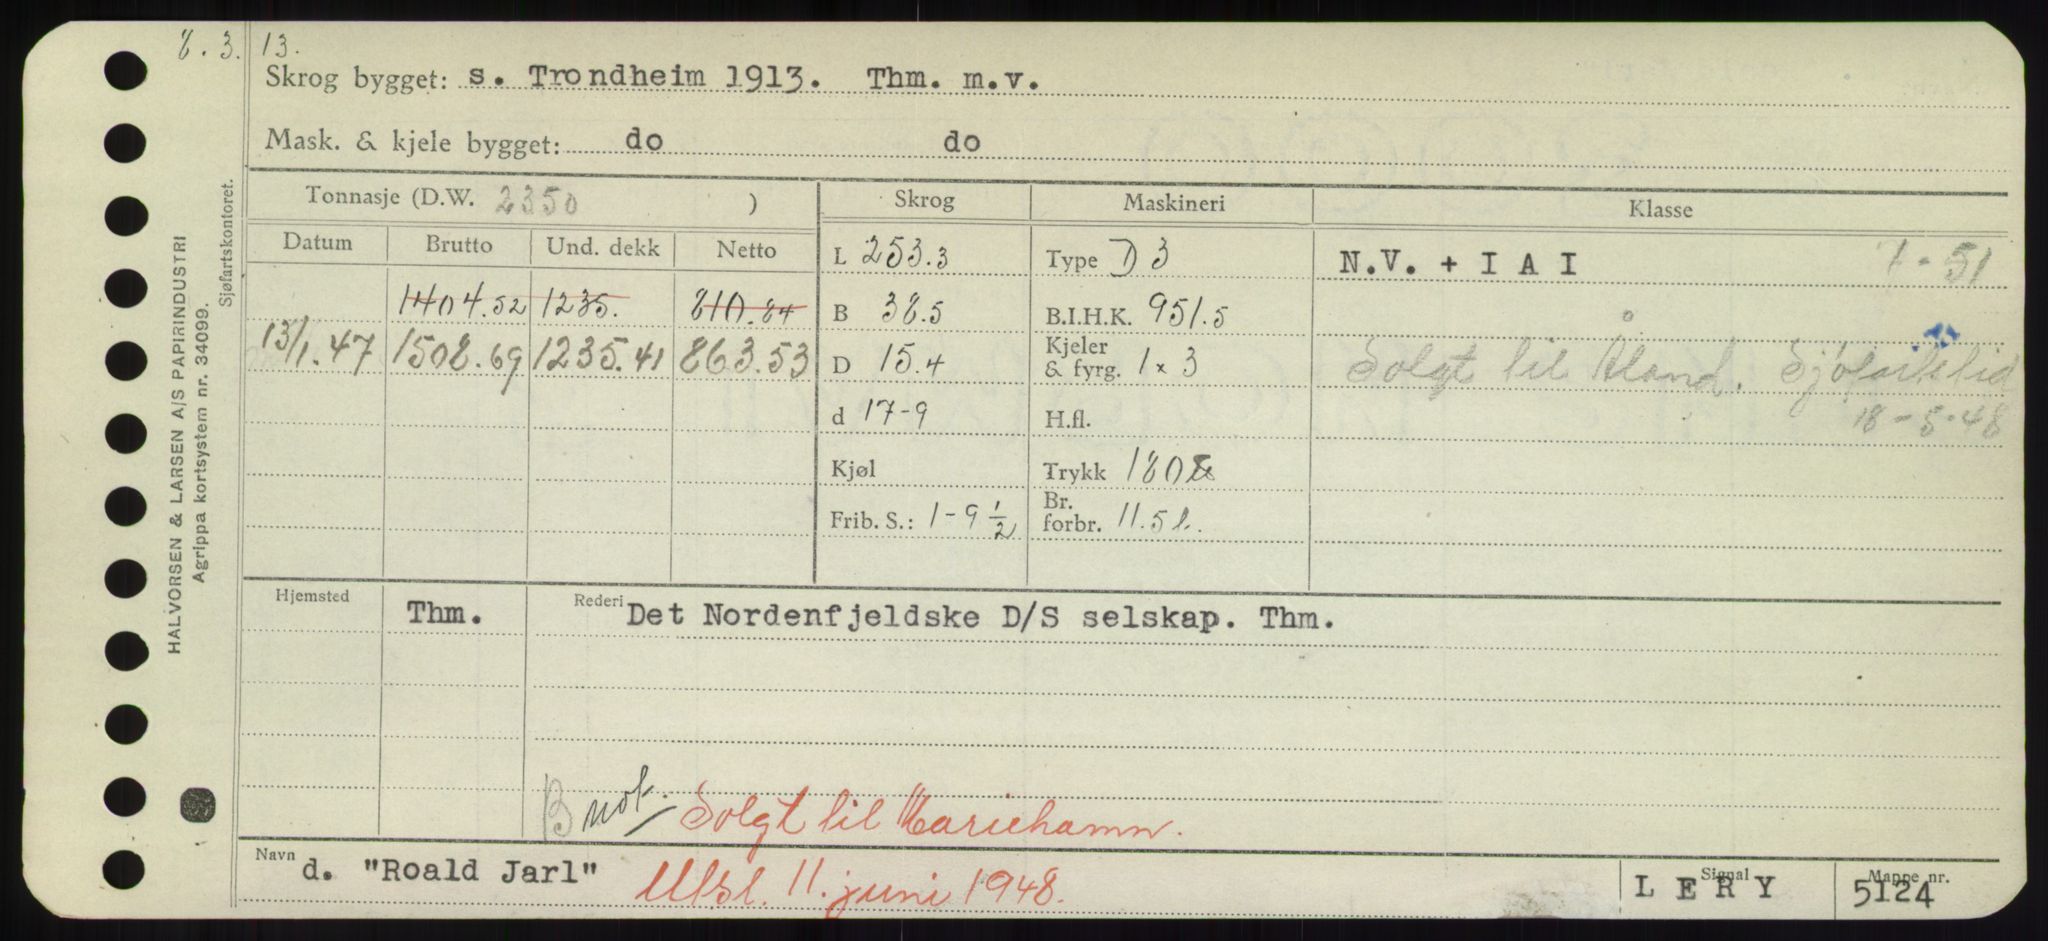 8.3.13.
Skrog bygget: s. Trondheim 1913. Thm. m.v.
Mask. & kjele bygget: do do
Tonnasje (D.W. 2350 ) Skrog Maskineri Klasse
Datum Brutto Und. dekk Netto
L 253.3 Type D 3 N.V. + I A I 7-51
1404.52 1235. 810.84 B 38.5 B.I.H.K. 951.5
13/1.47 1508.69 1235.41 863.53 D 15.4 Kjeler & fyrg. 1 x 3 Solgt til Åland. Sjøfartstid
d 17-9 H.fl. 18-5-48
Kjøl Trykk 180
Frib. S.: 1-9 1/2 Br. forbr. 11.5 t.
Hjemsted Thm. Rederi Det Nordenfjeldske D/S selskap. Thm.
B not. Solgt til Mariehamn.
Navn d. "Roald Jarl" Utsl. 11. juni 1948. Signal L E R Y Mappe nr. 5124
HALVORSEN & LARSEN A/S PAPIRINDUSTRI
Agrippa kortsystem nr. 34099.
Sjøfartskontoret.